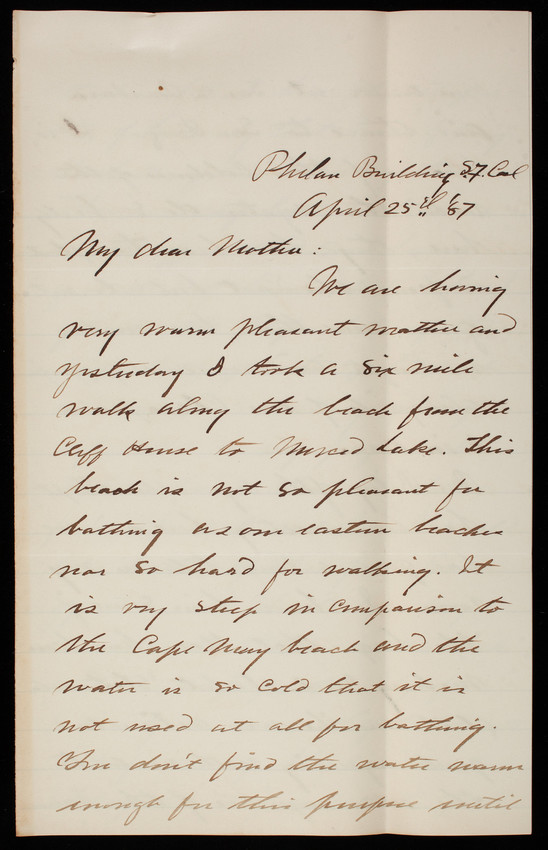 Phelan Building S.F. Cal
April 25th '87
My dear Mother:
We are having
very warm pleasant weather and
yesterday I took a six mile
walk along the beach from the
Cliff House to Merced Lake. This
beach is not so pleasant for
bathing as our eastern beaches
nor so hard for walking. It
is very steep in comparison to
the Cape May beach and the
water is so cold that it is
not used at all for bathing.
You don't find the water warm
enough for this purpose until